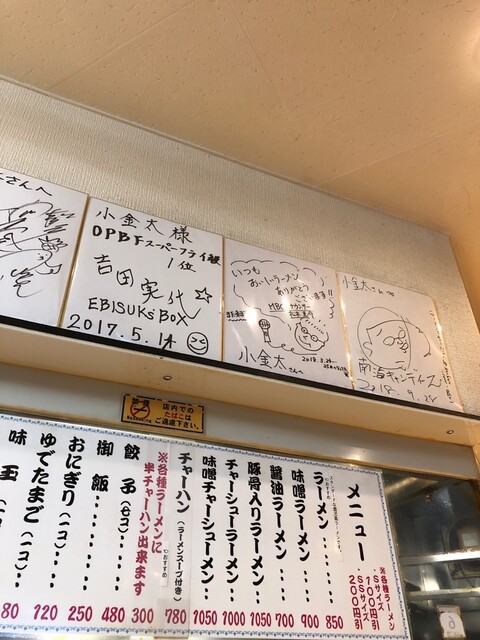 さんへ
小金太様
OPBFスーパーフライ級
1位
吉田実代
EBISUK's BOX
2017.5.14
いつも
おいしいラーメン
ありがとう
ございます!!
MBC アナウンサー
小金太さんへ
2018.3.24
小金太さんへ
南海キャンディーズ
2018.9.25
禁煙
店内での
たばこは
ご遠慮下さい。
メニュー
※各種ラーメン
Sサイズ 100円引
SSサイズ 200円引
ラーメン 850
味噌ラーメン 900
醤油ラーメン 700
豚骨入りラーメン‥ 1050
チャーシューラーメン‥ 1000
味噌チャーシューラーメン‥ 1050
チャーハン(ラーメンスープ付き)‥ 780
※各種ラーメンに
半チャーハン出来ます 300
餃子(七コ)‥‥ 480
御飯‥‥‥‥ 250
おにぎり(一コ)‥‥ 120
ゆでたまご(一コ)‥ 80
味玉(一コ)